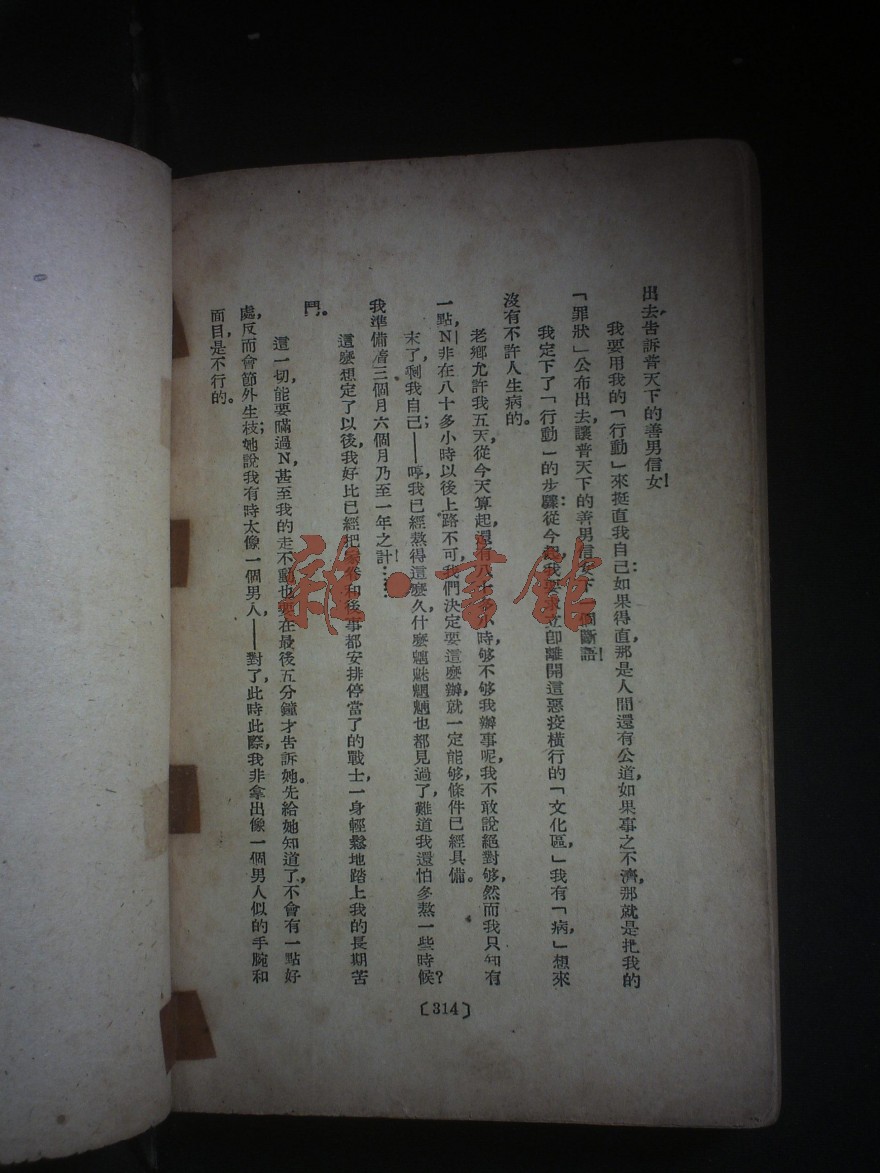 出去告訴普天下的善男信女!
我要用我的「行動」來挺直我自己;如果得直,那是人間還有公道,如果事之不濟,那就是把我的
「罪狀」公布出去,讓普天下的善男信女下一個斷語!
我定下了「行動」的步驟:從今起,我要求立卽離開這惡疫橫行的「文化區,」我有「病,」想來
沒有不許人生病的。
老鄉允許我五天,從今天算起,還有八十多小時,够不够我辦事呢,我不敢說絕對够,然而我只知有
一點,N非在八十多小時以後上路不可,我們決定要這麼辦,就一定能够,條件已經具備。
末了,剩我自己;——哼,我已經熬得這麼久,什麼魑魅魍魎也都見過了,難道我還怕多熬一些時候?
我準備着三個月六個月乃至一年之計!……
這麼想定了以後,我好比已經把 和後事都安排停當了的戰士,一身輕鬆地踏上我的長期苦
鬥。
這一切,能要瞞過N,甚至我的走不動也要在最後五分鐘才告訴她。先給她知道了,不會有一點好
處,反而會節外生枝;她說我有時太像一個男人,——對了,此時此際,我非拿出像一個男人似的手腕和
面目,是不行的。
〔314〕
雜·書館